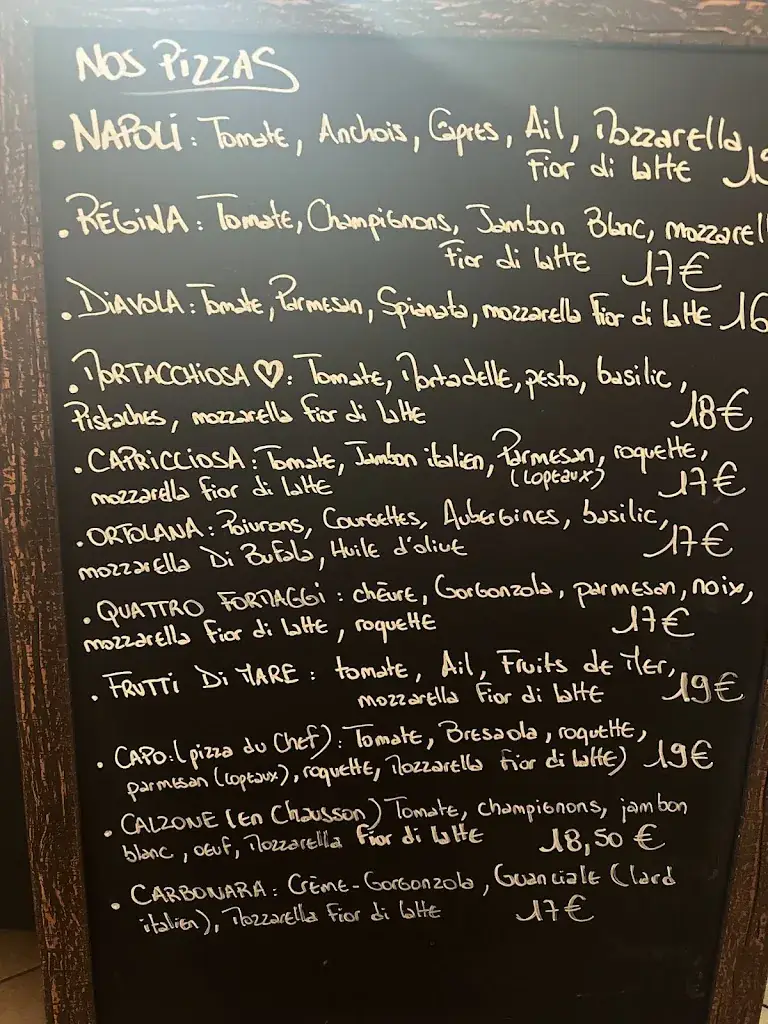 NOS PIZZAS
. NAPOLI : Tomate, Anchois, Câpres, Ail, Mozzarella,
Fior di latte
. RÉGINA : Tomate, Champignons, Jambon Blanc, mozzarell
Fior di latte 17€
. DIAVOLA : Tomate, Parmesan, Spianata, mozzarella Fior di latte 16
. MORTACCHIOSA ♡ : Tomate, Mortadelle, pesto, basilic,
Pistaches, mozzarella Fior di latte 18€
. CAPRICCIOSA : Tomate, Jambon italien, Parmesan, roquette,
(copeaux)
mozzarella Fior di latte 17€
. ORTOLANA : Poivrons, Courgettes, Aubergines, basilic,
mozzarella Di Bufala, Huile d'olive 17€
. QUATTRO FORMAGGI : chèvre, Gorgonzola, parmesan, noix,
mozzarella Fior di latte, roquette 17€
. FRUTTI Di MARE : tomate, Ail, Fruits de Mer,
mozzarella Fior di latte 19€
. CAPO : (pizza du Chef) : Tomate, Bresaola, roquette,
parmesan (copeaux), roquette, Mozzarella Fior di latte) 19€
. CALZONE (en Chausson) Tomate, champignons, jambon
blanc, oeuf, Mozzarella Fior di latte 18,50 €
. CARBONARA : Crème-Gorgonzola, Guanciale (lard
italien), Mozzarella Fior di latte 17€